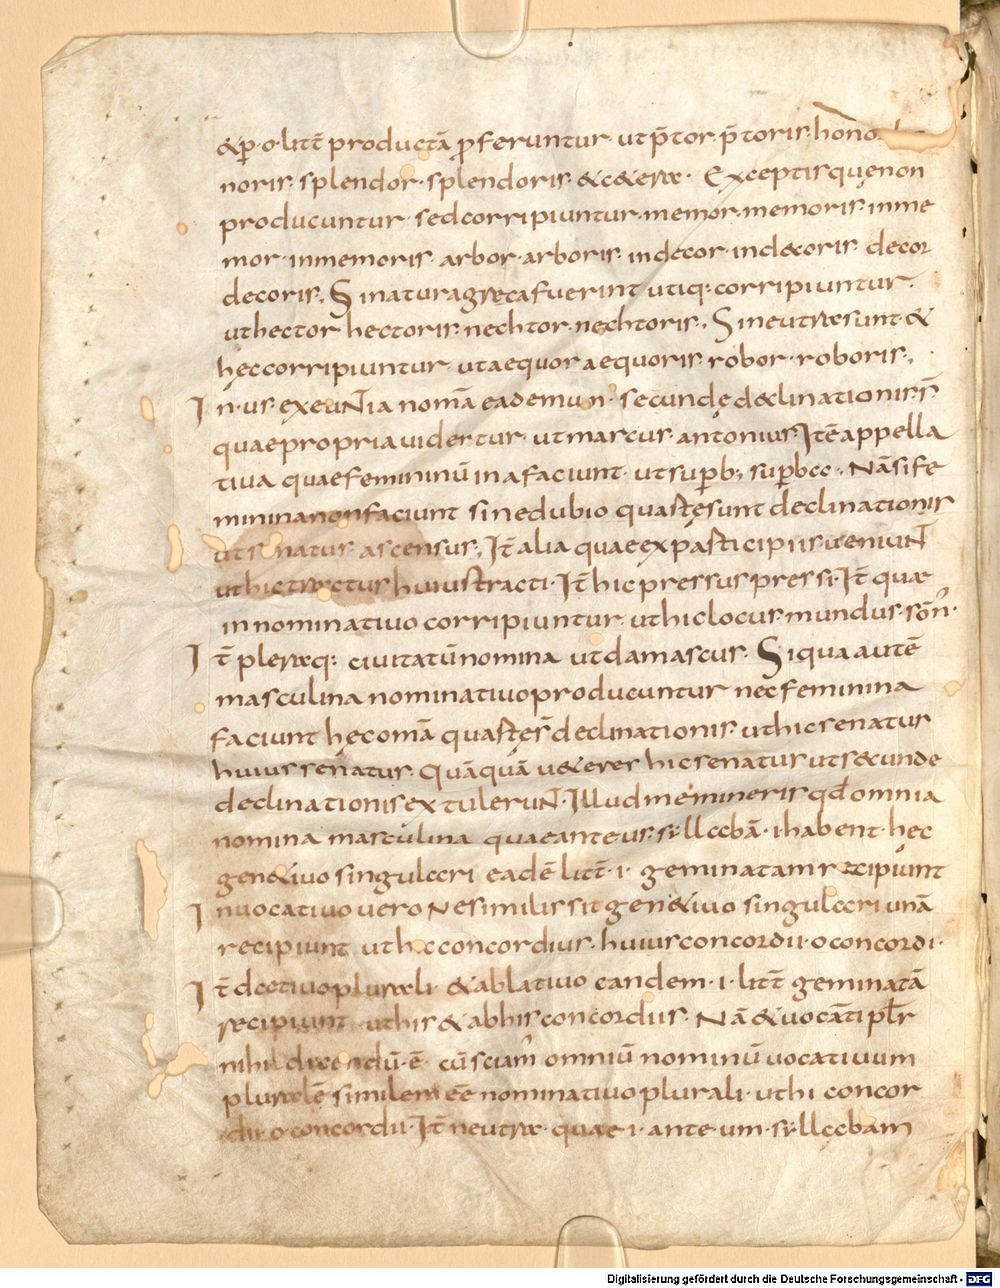 & p · o · litt̄ productā p̱feruntur · ut p̄tor · p̄toris · hono
noris · splendor · splendoris · &c&era · Exceptis quę non
producuntur · sed corripiuntur · memor · memoris · inme
mor · inmemoris · arbor · arboris · indecor · indecoris · decor
decoris. Si natura greca fuerint utiq: corripiuntur ·
ut hector hectoris · nechtor · nechtoris. Si neutra sunt &
hęc corripiuntur · ut aequor aequoris · robor · roboris.
In · us · exeuntia nomā eadem un · secundę declinationis · s̄
quae propria uidentur · ut marcus · antonius. Itē appella
tiua quae femininū in a faciunt · ut superb; superba · Nā si fe
minina non faciunt sine dubio quartę sunt declinationis
ut senatus · ascensus. It̄ alia quae ex participiis ueniunt
ut hic tractus huius tracti · It̄ hic pressus pressi · It̄ quae
in nominatiuo corripiuntur · ut hic locus · mundus · somn ·
It̄ pleraq: ciuitatū nomina ut damascus. Si qua autē
masculina nominatiuo producuntur nec feminina
faciunt hęc omā quartęs̄ declinationis · ut hic senatus
huius senatus · Quāquā u&eres hic senatus ut secundę
declinationis extulerunt · Illud memineris qđ omnia
nomina masculina quae ante us · syllabā · i · habent · hęc
gen&iuo singulari eadē litt̄ · i · geminatam recipiunt
In uocatiuo uero Ne similis sit gen&iuo singulari unā
recipiunt ut hic concordius · huius concordii · o concordi ·
It̄ datiuo plurali · & ablatiuo eandem · i · litt̄ geminatā
recipiunt ut his & ab his concordiis · Nā & uocāti plr̄
nihil dicendū · ē · cū sciam omniū nominū uocatiuum
pluralē similem eē nominatiuo plurali · ut hi concor
dii · o concordii · It̄ neutra · quae · i · ante · um · syllabam
Digitalisierung gefördert durch die Deutsche Forschungsgemeinschaft - DFG